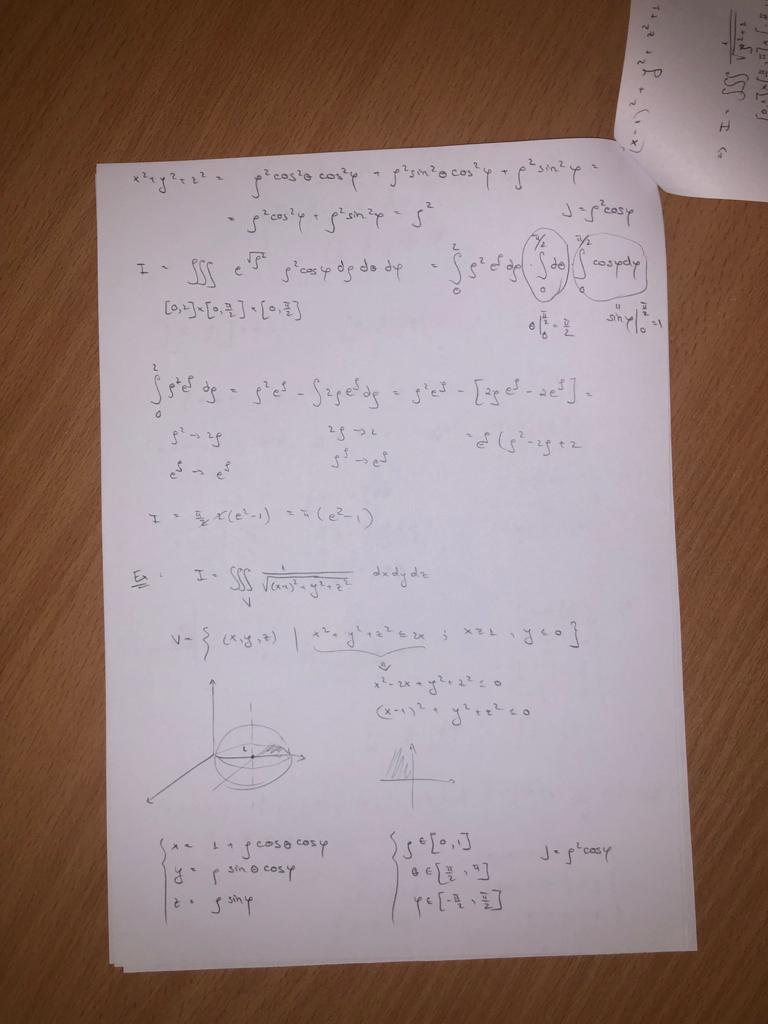 x² + y² + z² = ρ² cos²θ cos²φ + ρ² sin²θ cos²φ + ρ² sin²φ =
= ρ² cos²φ + ρ² sin²φ = ρ²
J = ρ² cosφ
I = ∭ e^√ρ² ρ² cosφ dρ dθ dφ = ∫₀² ρ² e^ρ dρ · ∫₀^(π/2) dθ ∫₀^(π/2) cosφ dφ
[0,2] × [0, π/2] × [0, π/2]
θ |₀^(π/2) = π/2
sinφ |₀^(π/2) = 1
∫₀² ρ² e^ρ dρ = ρ² e^ρ - ∫ 2ρ e^ρ dρ = ρ² e^ρ - [2ρ e^ρ - 2e^ρ] =
ρ² → 2ρ 2ρ → 2 = e^ρ (ρ² - 2ρ + 2
e^ρ → e^ρ ρ^ρ → e^ρ
I = π/2 2 (e² - 1) = π (e² - 1)
Ex : I = ∭ 1/√((x-1)² + y² + z²) dx dy dz
V
V = { (x, y, z) | x² + y² + z² ≤ 2x ; x ≥ 1 , y ≤ 0 }
x² - 2x + y² + z² ≤ 0
(x-1)² + y² + z² ≤ 0
1
x = 1 + ρ cosθ cosφ
y = ρ sinθ cosφ
z = ρ sinφ
ρ ∈ [0, 1]
θ ∈ [π/2, π]
φ ∈ [-π/2, π/2]
J = ρ² cosφ
(x-1)² + y² + z² + 1
⇒ I = ∭ 1/√ρ²+1